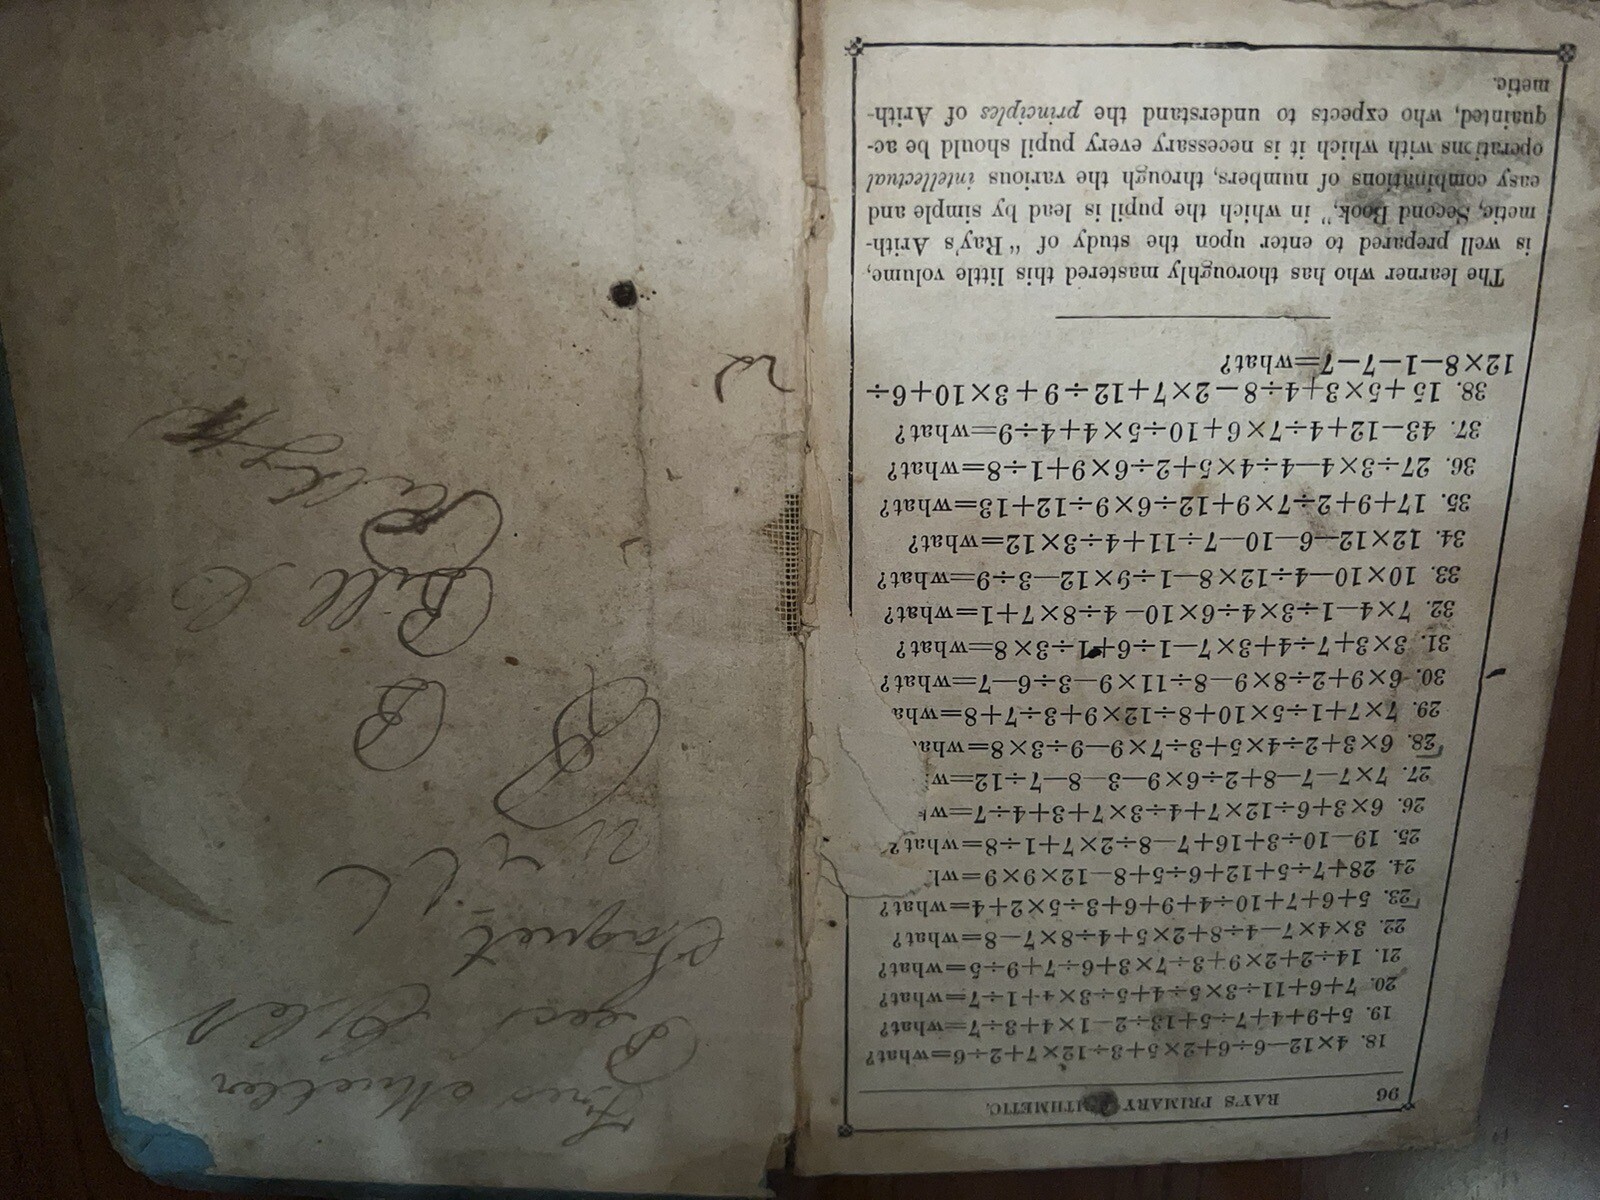 96 RAY'S PRIMARY ARITHMETIC.
18. 4×12—6÷6+2×5+3÷12×7+2÷6=what?
19. 5+9+4+7÷5+13÷2—1×4+3÷7=what?
20. 7+6+11÷3×5÷4+5÷3×4+1÷7=what?
21. 14÷2+2×9+3÷7×3+6÷7+9÷5=what?
22. 3×4×7—4÷8+2×5+4÷8×7—8=what?
23. 5+6+7+10÷4+9+6+3÷5×2+4=what?
24. 28+7÷5+12+6÷5+8—12×9×9=wh
25. 19—10÷3+16+7—8÷2×7+1÷8=what?
26. 6×3+6÷12×7+4÷3×7+3+4÷7=w
27. 7×7—7—8+2÷6×9—3—8—7÷12=w
28. 6×3+2÷4×5+3÷7×9—9÷3×8=wha
29. 7×7+1÷5×10+8÷12×9+3÷7+8=wha
30. 6×9+2÷8×9—8÷11×9—3÷6—7=what?
31. 3×3+7÷4+3×7—1÷6+1÷3×8=what?
32. 7×4—1÷3×4÷6×10—4÷8×7+1=what?
33. 10×10—4÷12×8—1÷9×12—3÷9=what?
34. 12×12—6—10—7÷11+4÷3×12=what?
35. 17+9+2÷7×9+12÷6×9÷12+13=what?
36. 27÷3×4—4÷4×5+2÷6×9+1÷8=what?
37. 43—12+4÷7×6+10÷5×4+4÷9=what?
38. 15+5×3+4÷8—2×7+12÷9+3×10+6÷
12×8—1—7—7=what?
The learner who has thoroughly mastered this little volume,
is well prepared to enter upon the study of "Ray's Arith-
metic, Second Book," in which the pupil is lead by simple and
easy combinations of numbers, through the various intellectual
operations with which it is necessary every pupil should be ac-
quainted, who expects to understand the principles of Arith-
metic.
B
Bill